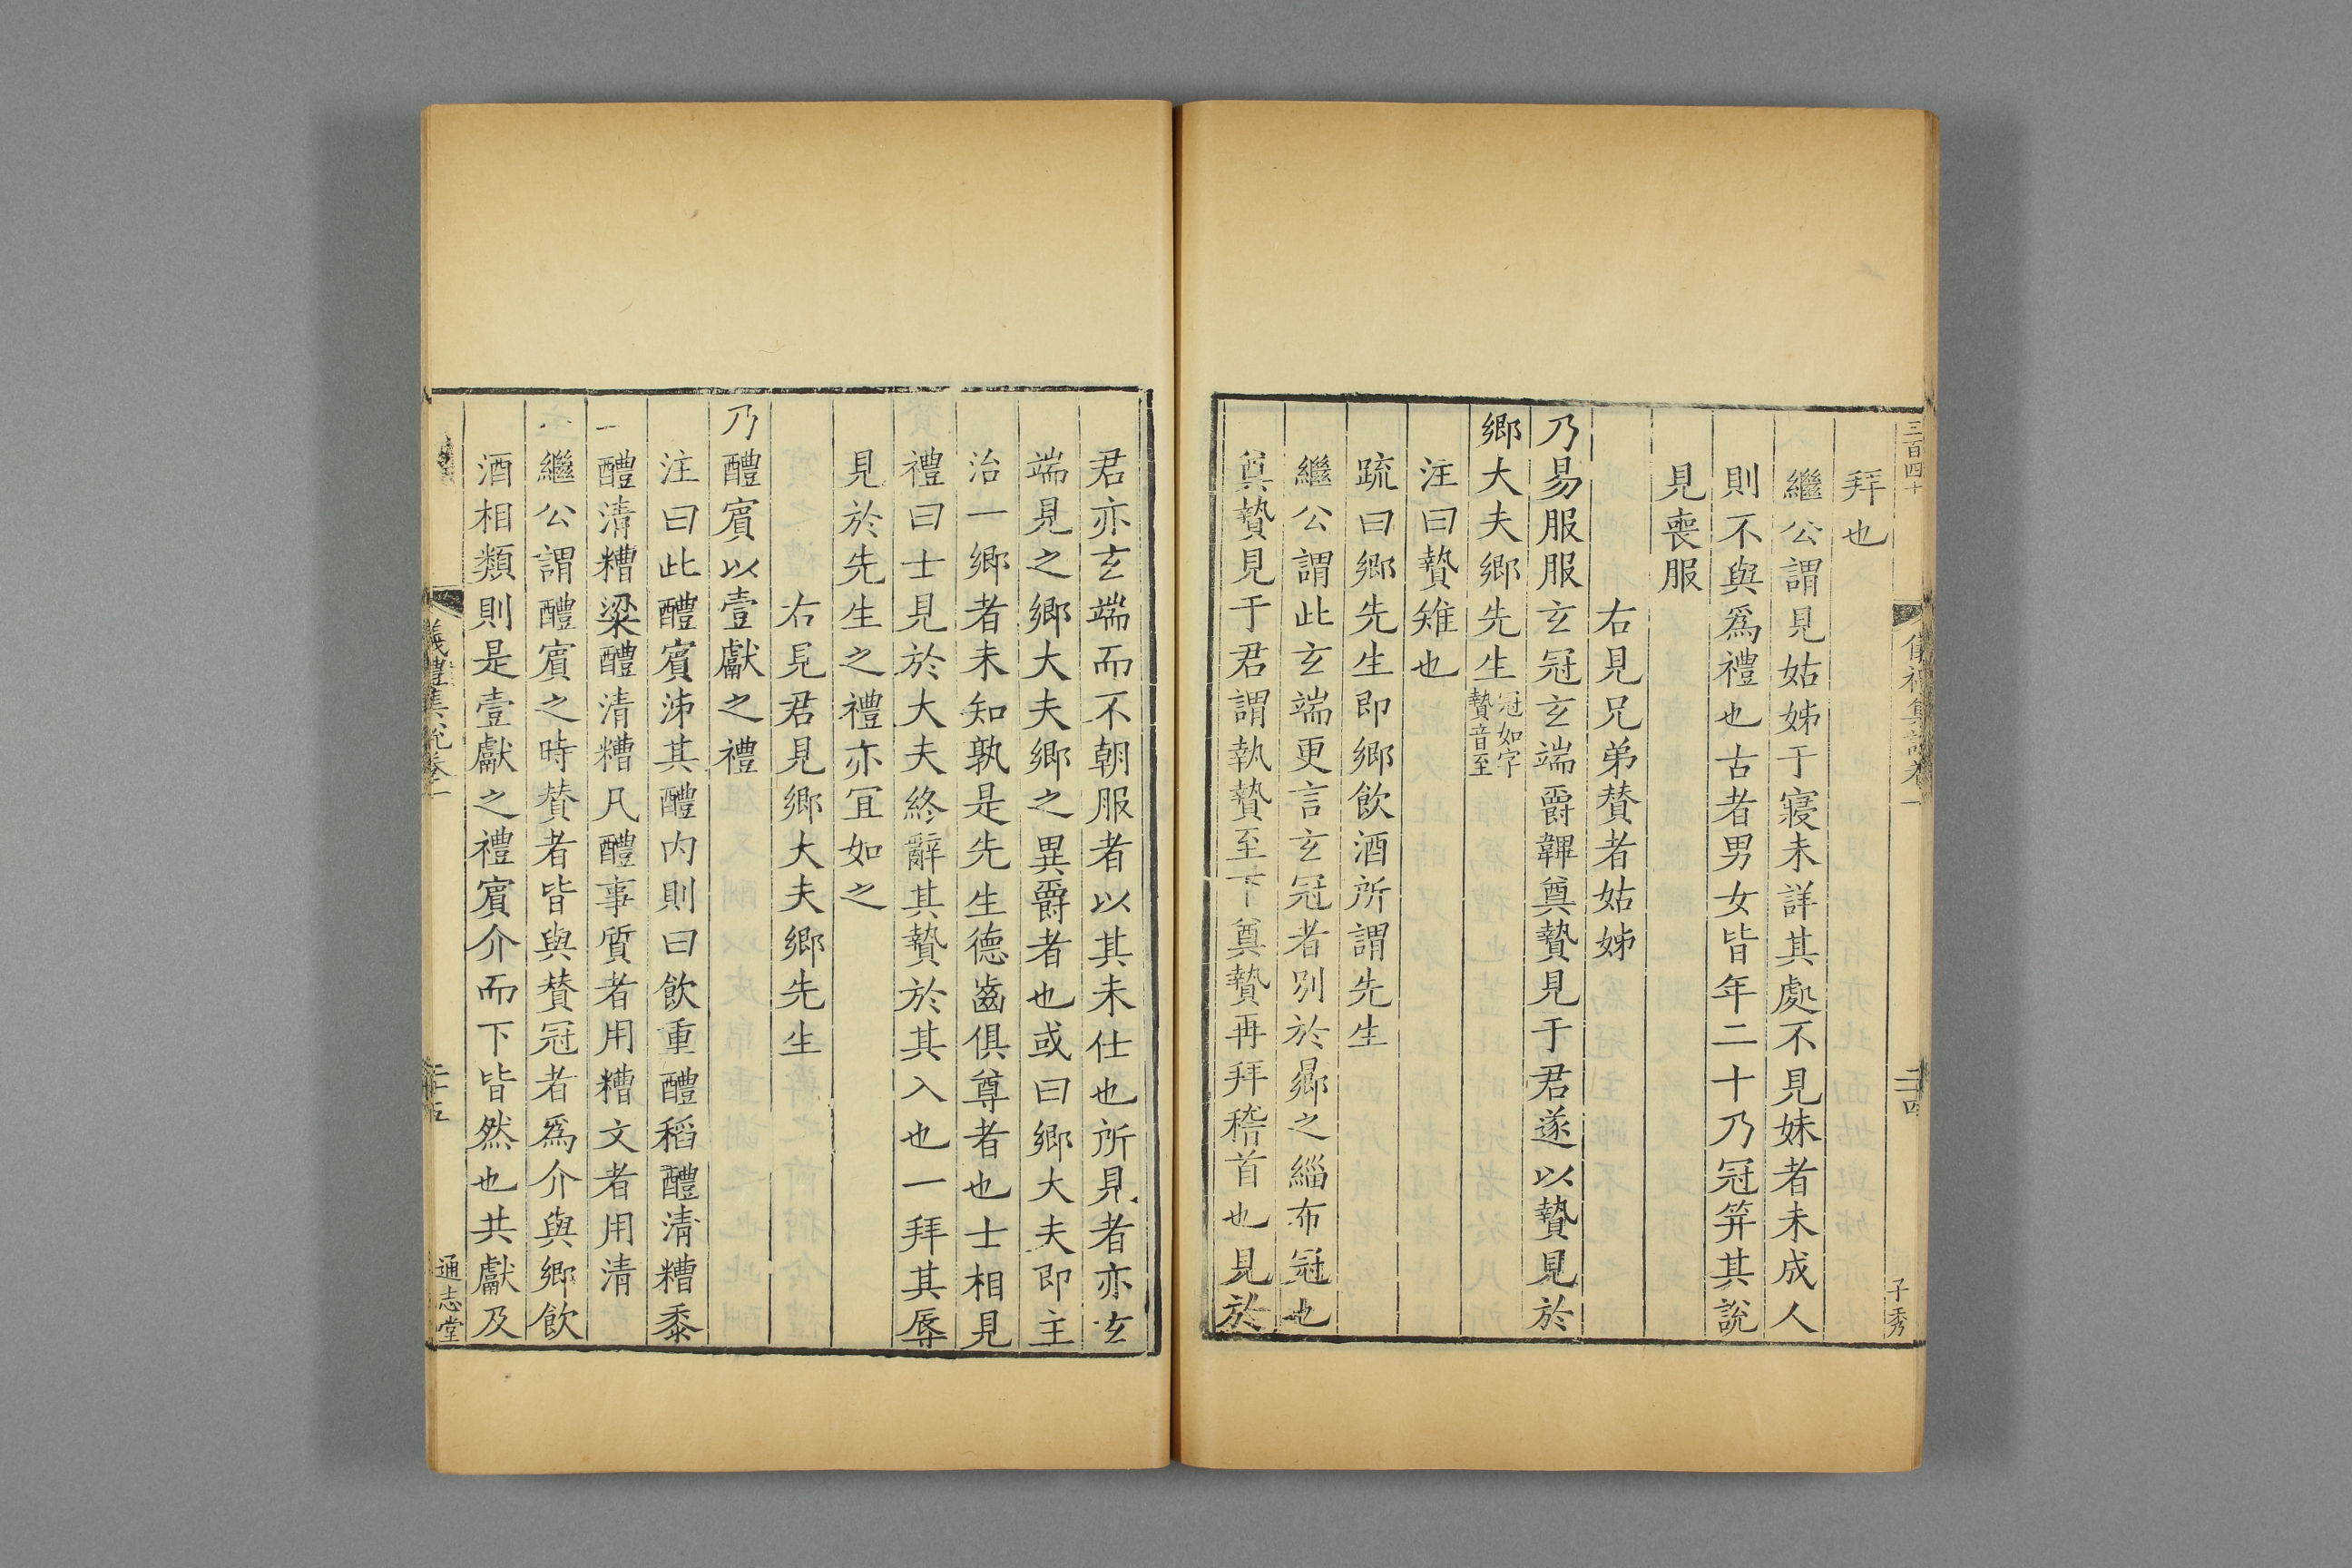 三百四十
子秀
拜也
繼公謂見姑姊于寢未詳其處不見妹者未成人
則不與爲禮也古者男女皆年二十乃冠笄其說
見喪服
右見兄弟賛者姑姊
乃易服服玄冠玄端爵韠奠贄見于君遂以贄見於
鄉大夫鄉先生冠如字贄音至
注曰贄雉也
疏曰鄉先生即鄉飲酒所謂先生
繼公謂此玄端更言玄冠者別於曏之緇布冠也
奠贄見于君謂執贄至下奠贄再拜稽首也見於
君亦玄端而不朝服者以其未仕也所見者亦玄
端見之鄉大夫鄉之異爵者也或曰鄉大夫即主
治一鄉者未知孰是先生德齒俱尊者也士相見
禮曰士見於大夫終辭其贄於其入也一拜其辱
見於先生之禮亦宜如之
右見君見鄉大夫鄉先生
乃醴賔以壹獻之禮
注曰此醴賔泲其醴内則曰飲重醴稻醴清糟黍
醴清糟粱醴清糟凡醴事質者用糟文者用清
繼公謂醴賔之時賛者皆與賛冠者爲介與鄉飲
酒相類則是壹獻之禮賔介而下皆然也共獻及
儀禮集說卷一
二十五
通志堂